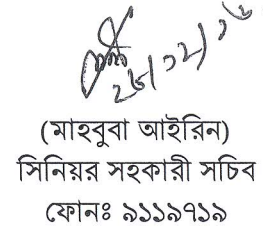 (মাহবুবা আইরিন)
সিনিয়র সহকারী সচিব
ফোনঃ ৯১১৯৭১৯